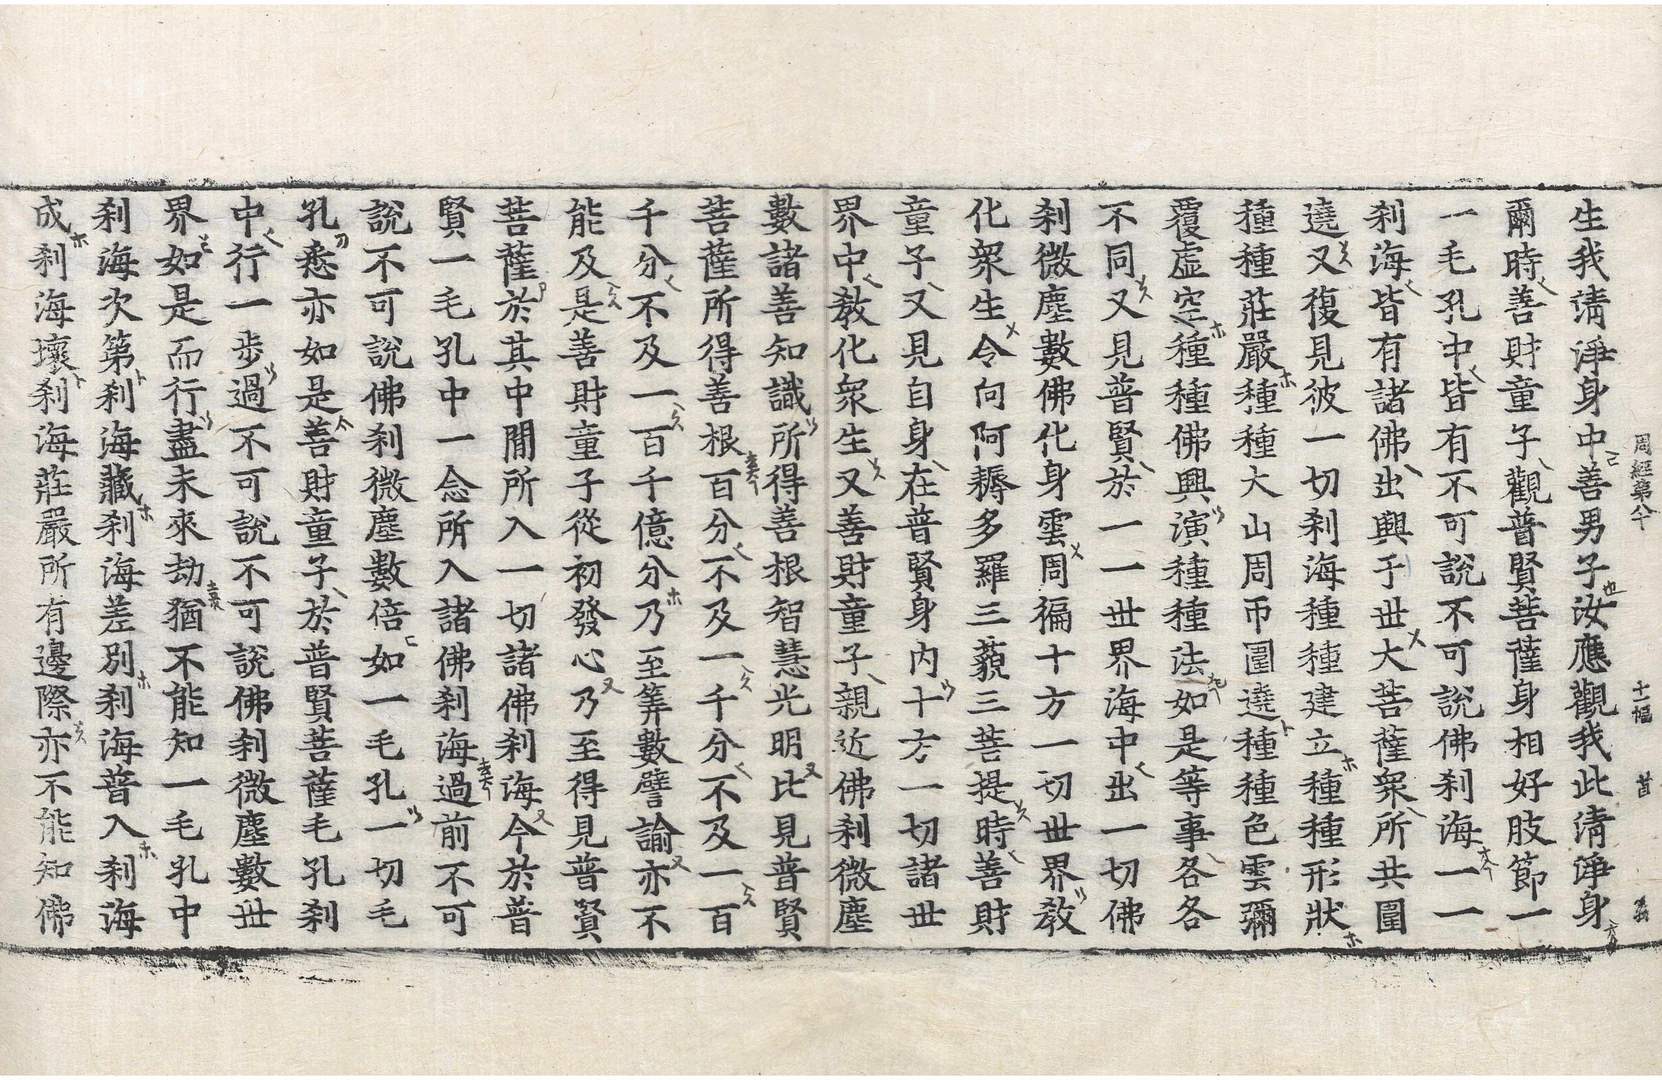 周經第八十 十幅 首 義
生我清淨身中善男子汝應觀我此清淨身
爾時善財童子觀普賢菩薩身相好肢節一
一毛孔中皆有不可說不可說佛剎海一一
剎海皆有諸佛出興于世大菩薩衆所共圍
遶又復見彼一切剎海種種建立種種形狀
種種莊嚴種種大山周帀圍遶種種色雲彌
覆虛空種種佛興演種種法如是等事各各
不同又見普賢於一一世界海中出一切佛
剎微塵數佛化身雲周徧十方一切世界教
化衆生令向阿耨多羅三藐三菩提時善財
童子又見自身在普賢身內十方一切諸世
界中教化衆生又善財童子親近佛剎微塵
數諸善知識所得善根智慧光明比見普賢
菩薩所得善根百分不及一千分不及一百
千分不及一百千億分乃至筭數譬諭亦不
能及是善財童子從初發心乃至得見普賢
菩薩於其中間所入一切諸佛剎海今於普
賢一毛孔中一念所入諸佛剎海過前不可
說不可說佛剎微塵數倍如一毛孔一切毛
孔悉亦如是善財童子於普賢菩薩毛孔剎
中行一步過不可說不可說佛剎微塵數世
界如是而行盡未來劫猶不能知一毛孔中
剎海次第剎海藏剎海差別剎海普入剎海
成剎海壞剎海莊嚴所有邊際亦不能知佛